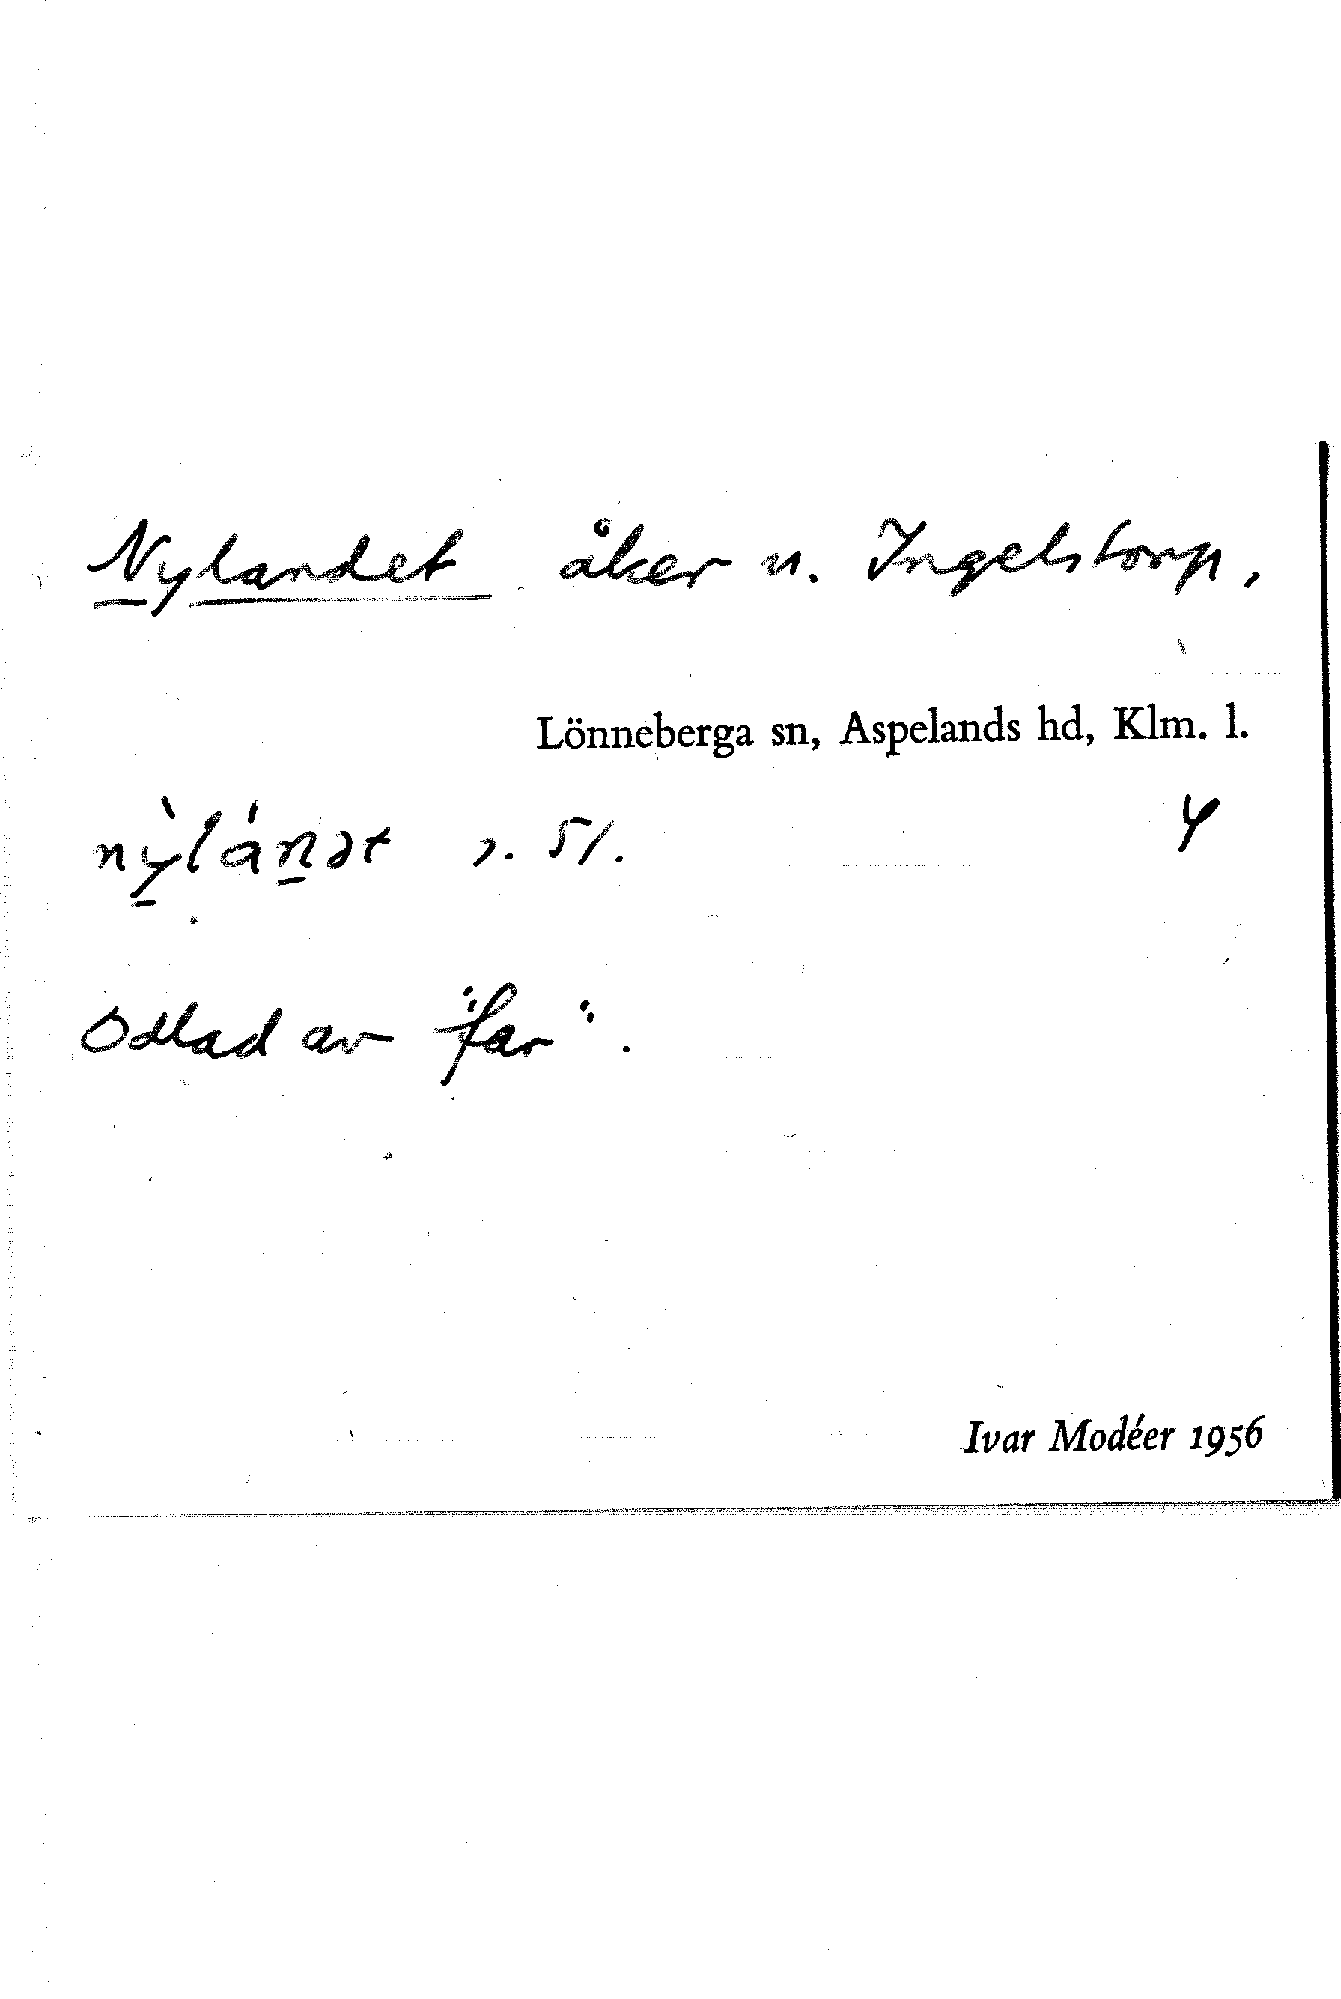 Nylandet åker u. Ingelstorp,
Lönneberga sn, Aspelands hd, Klm. l.
nỳlánət 51. 4
Odlad av "far".
Ivar Modéer 1956